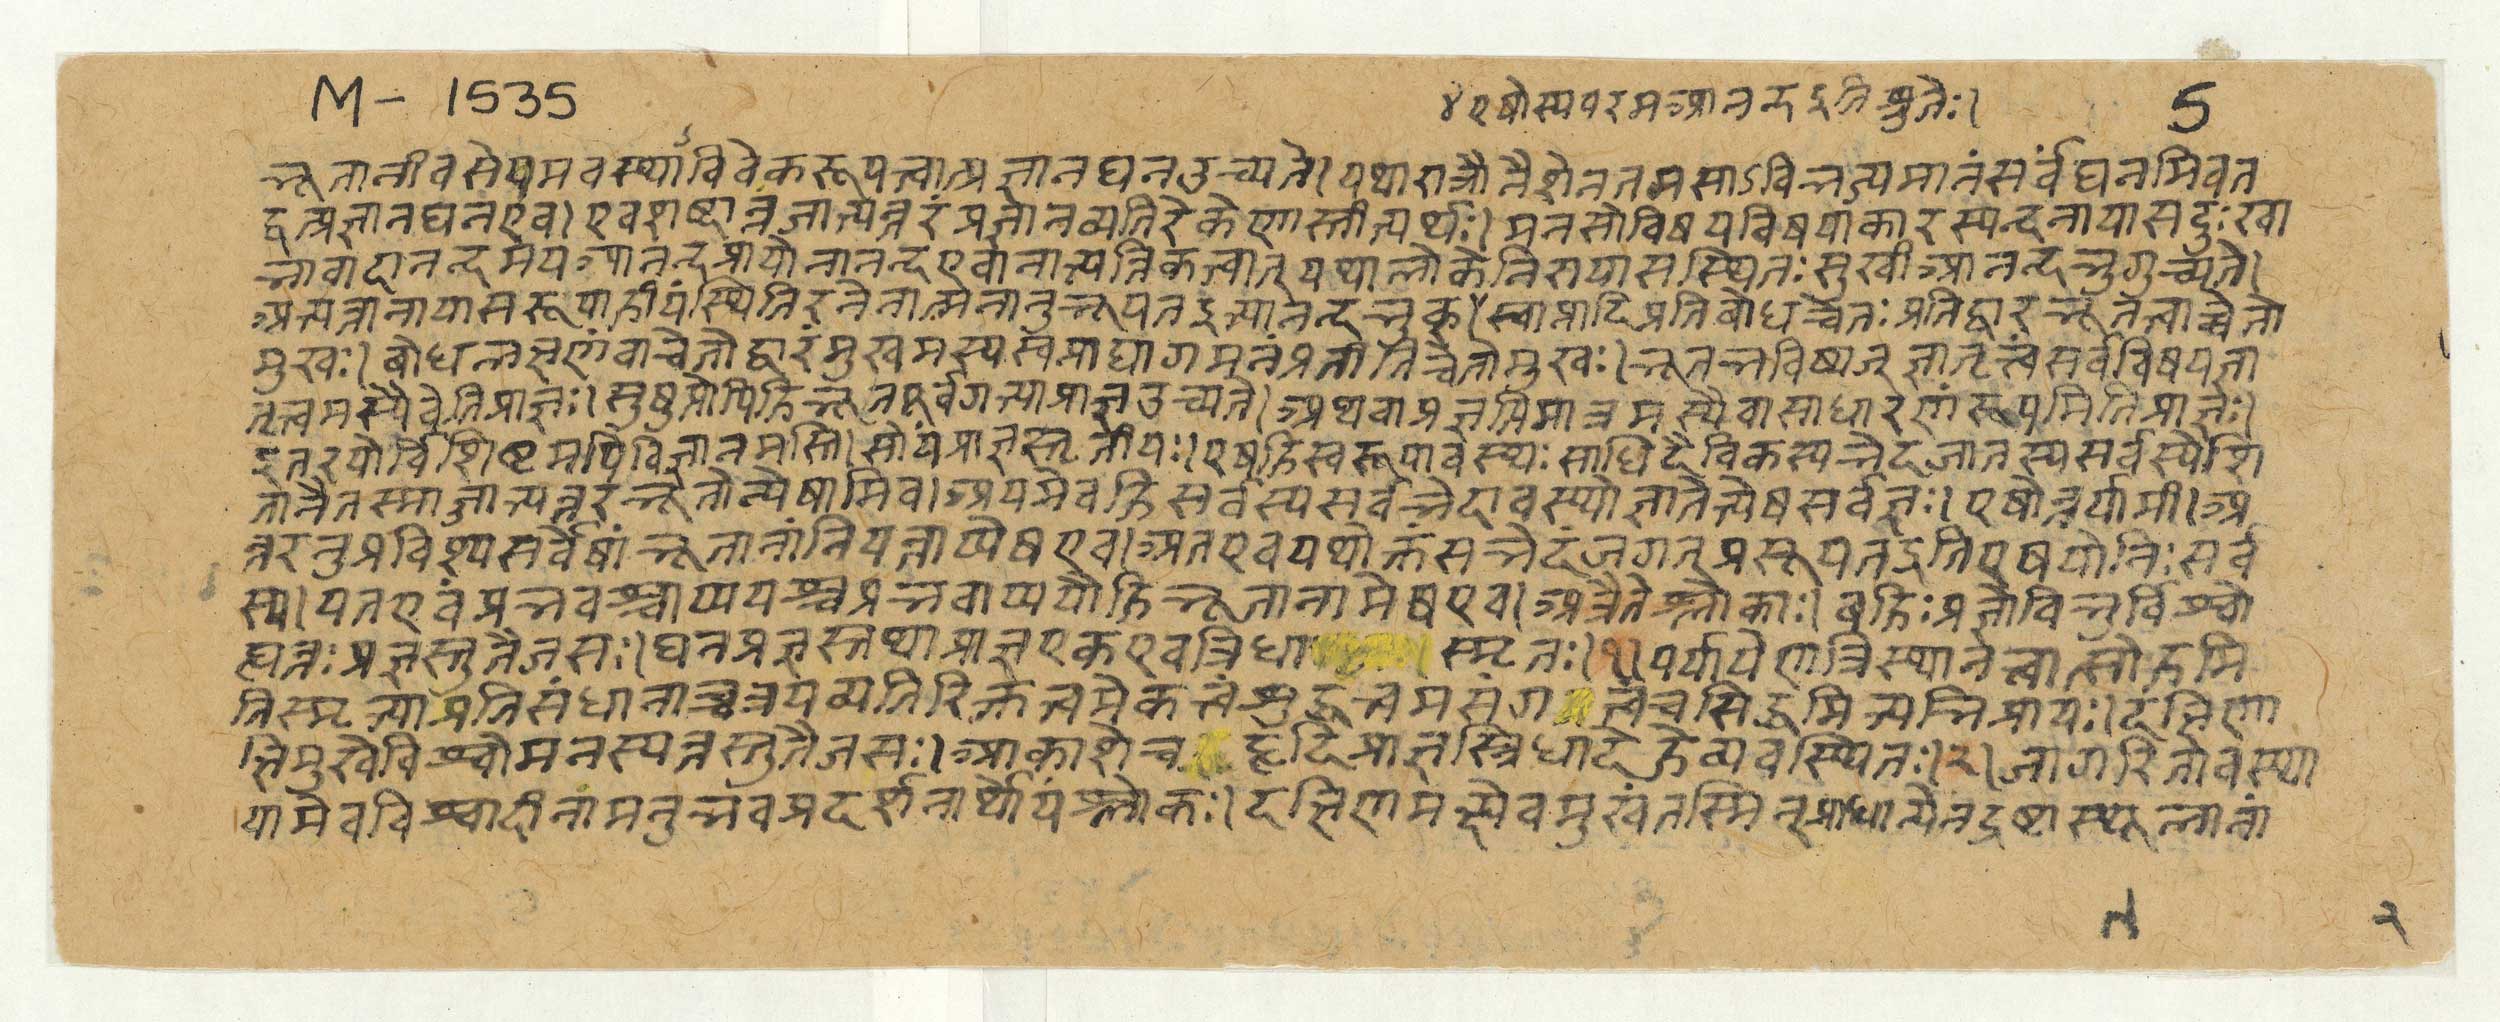 M - 1535
४ एषोस्य परम आनन्द इति श्रुतेः।
5
भूतानीव सेयमवस्थाऽविवेकरूपत्वात्प्रज्ञानघन उच्यते। यथा रात्रौ नैशेन तमसाऽविभज्यमानं सर्वं घनमिव त
द्वत्प्रज्ञानघन एव। एवशब्दान्न जात्यन्तरं प्रज्ञानव्यतिरेकेणास्तीत्यर्थः। मनसो विषयविषय्याकारस्पन्दनायासदुःखा
भावादानन्दमय आनन्दप्रायो नानन्द एवानात्यन्तिकत्वात् यथा लोके निरायासस्थितः सुखी आनन्दभुगुच्यते।
अत्यन्तानायासरूपा हीयं स्थितिरनेनात्मनानुभूयत इत्यानन्दभुक् ४ स्वप्नादिप्रतिबोधचेतः प्रतिद्वारभूतत्वाच्चेतो
मुखः। बोधलक्षणं वा चेतो द्वारं मुखमस्य स्वप्नाद्यागमनं प्रतीति चेतोमुखः। भूतभविष्यज्ज्ञातृत्वं सर्वविषयज्ञा
तृत्वमस्यैवेति प्राज्ञः। सुषुप्तोपि हि भूतपूर्वगत्या प्राज्ञ उच्यते। अथवा प्रज्ञप्तिमात्रमस्यैवासाधारणं रूपमिति प्राज्ञः।
इतरयोर्विशिष्टमपि विज्ञानमस्ति। सोयं प्राज्ञस्तृतीयः। एष हि स्वरूपावस्थः साधिदैविकस्य भेदजातस्य सर्वस्येशि
ता नैतस्माज्जात्यन्तरभूतोन्येषामिव। अयमेव हि सर्वस्य सर्वभेदावस्थो ज्ञातेत्येष सर्वज्ञः। एषोन्तर्यामी। अ
न्तरनुप्रविश्य सर्वेषां भूतानां नियन्ताप्येष एव। अत एव यथोक्तं सभेदं जगत् प्रसूयत इति एष योनिः सर्व
स्य। यत एवं प्रभवश्चाप्ययश्च प्रभवाप्ययौ हि भूतानामेष एव। अत्रैते श्लोकाः। बहिः प्रज्ञो विभुर्विश्वो
ह्यन्तः प्रज्ञस्तु तैजसः। घनप्रज्ञस्तथा प्राज्ञ एक एव त्रिधा स्मृतः। १। पर्यायेण त्रिस्थानत्वात्सोहमि
ति स्मृत्या प्रतिसंधानाच्च त्रयव्यतिरिक्तत्वमेकत्वं शुद्धत्वमसंगत्वं च सिद्धमित्यभिप्रायः। दक्षिणा
क्षिमुखे विश्वो मनस्यन्तस्तु तैजसः। आकाशे च हृदि प्राज्ञस्त्रिधा देहे व्यवस्थितः। २। जागरितावस्था
यामेव विश्वादीनामनुभवप्रदर्शनार्थोयं श्लोकः। दक्षिणमक्ष्येव मुखं तस्मिन् प्राधान्येन द्रष्टा स्थूलानां
२